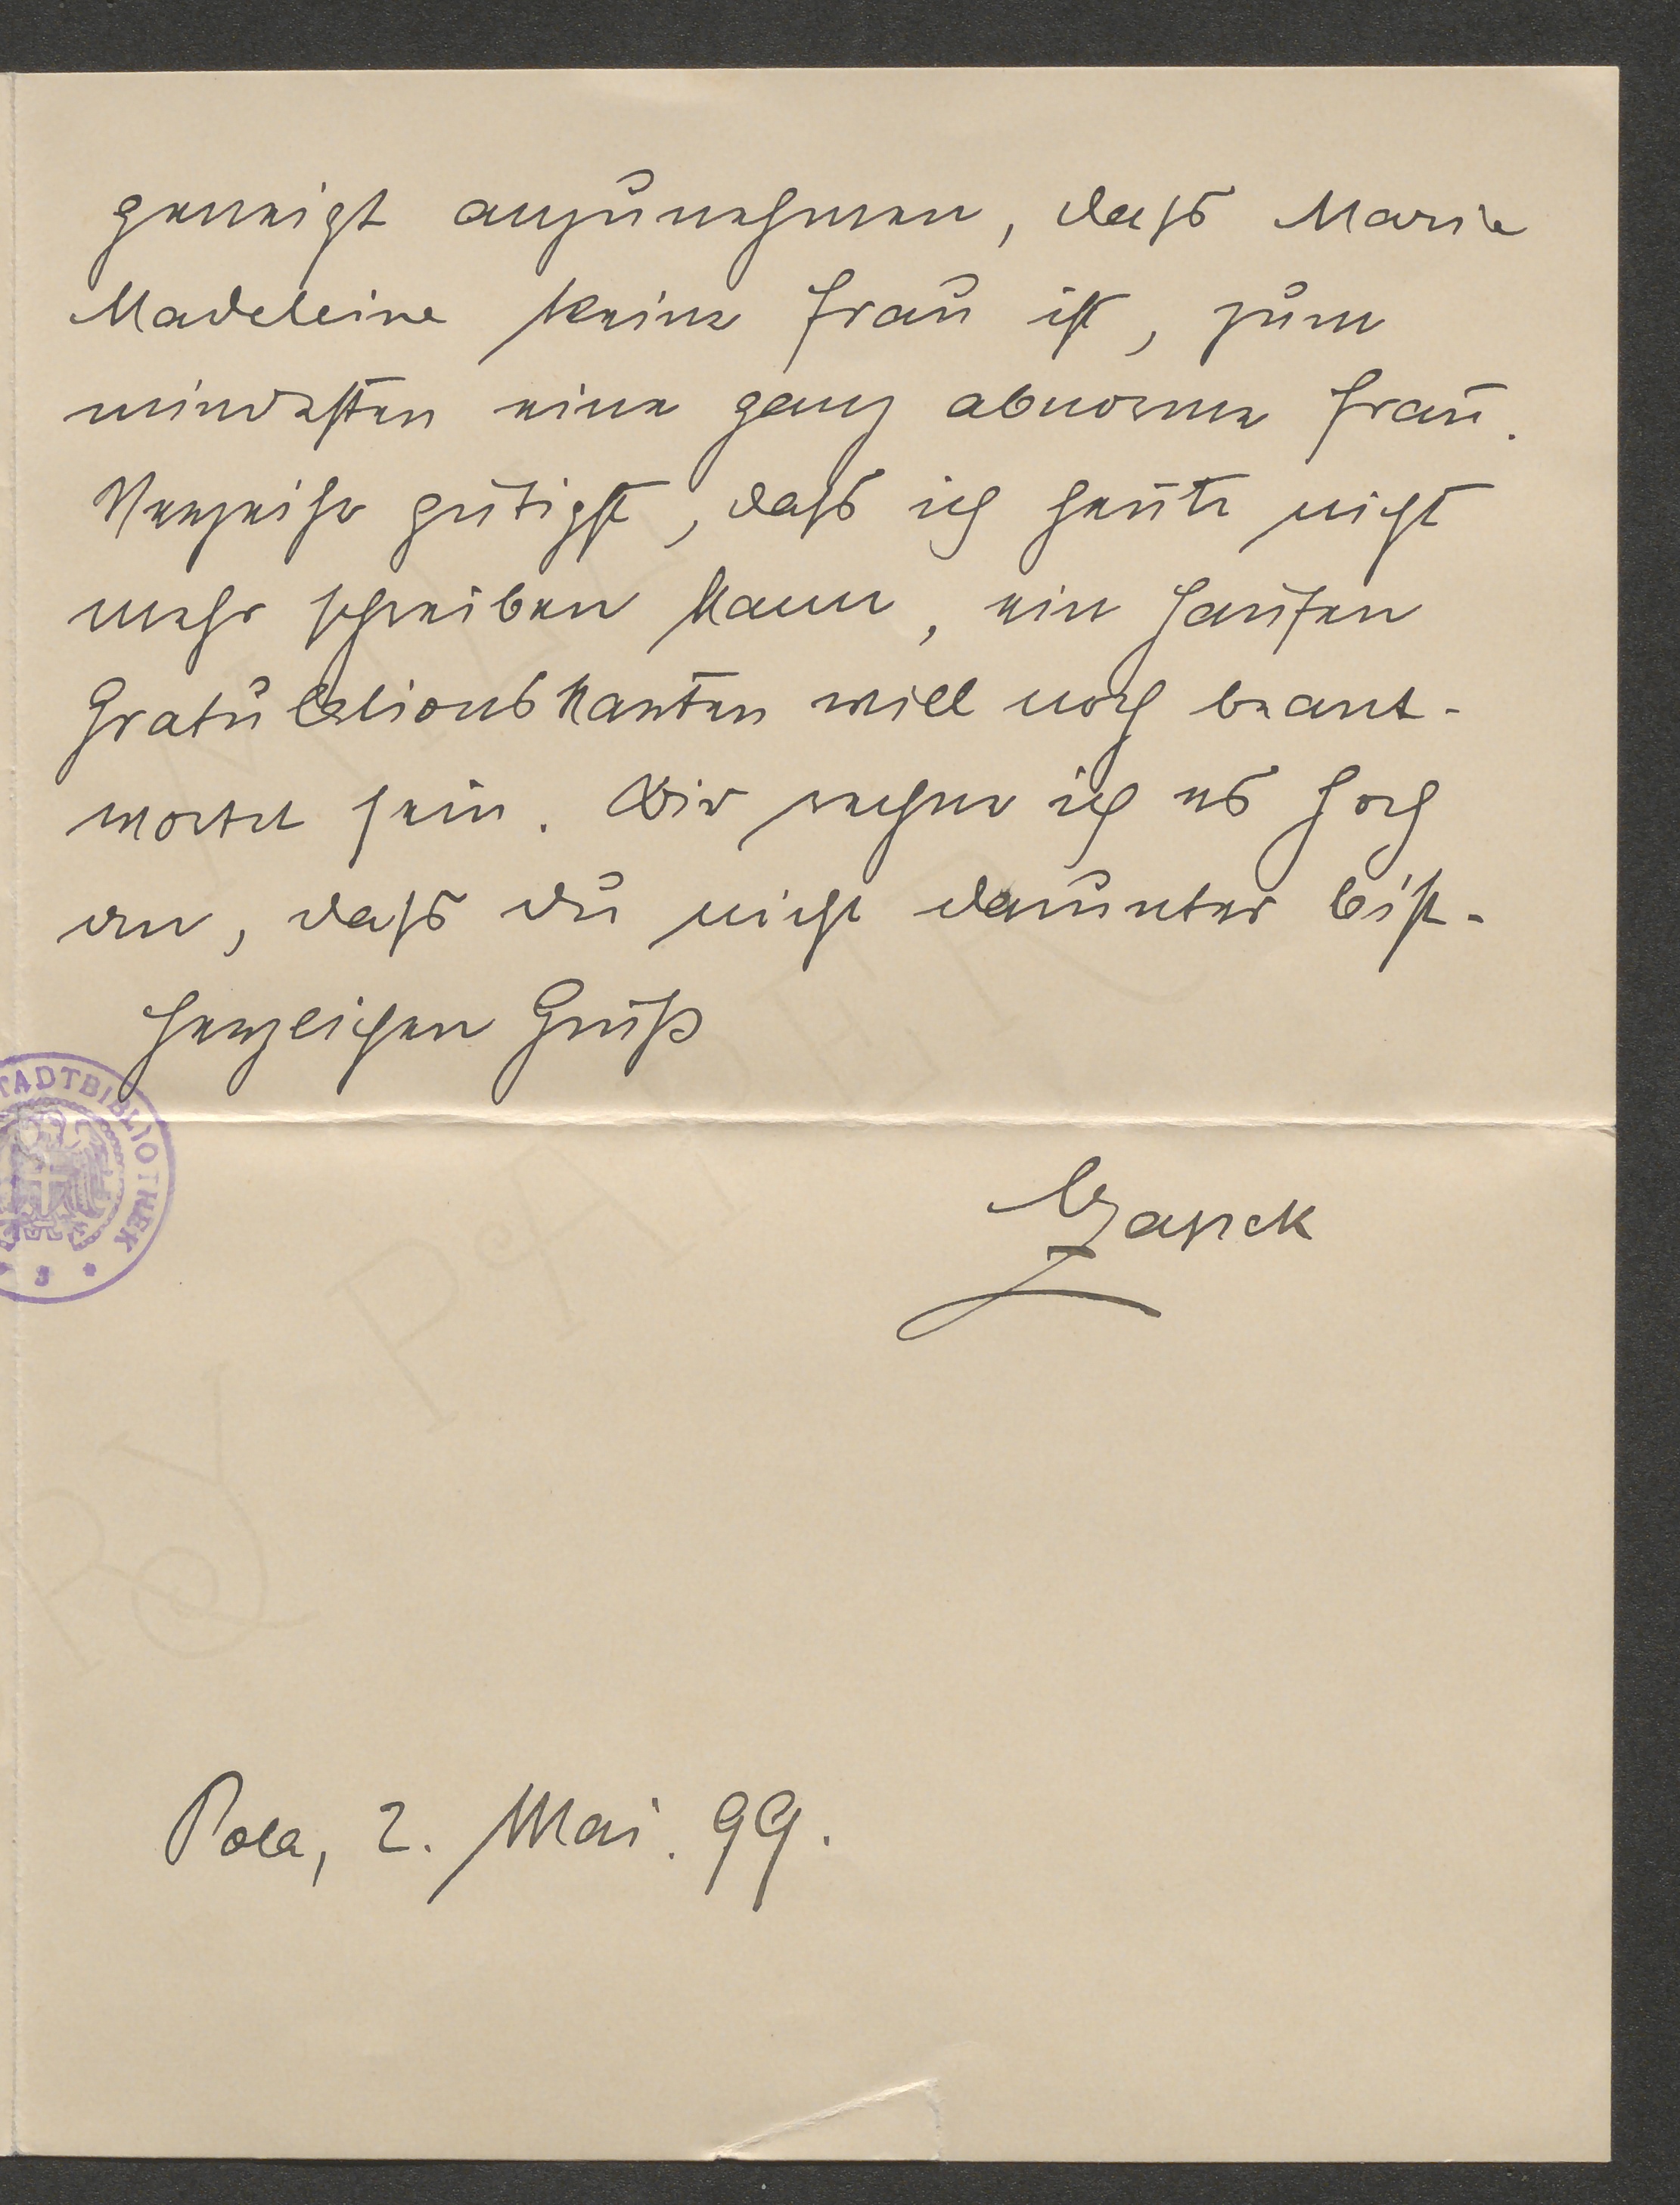 geneigt anzunehmen, dass Marie
Madeleine keine Frau ist, zum
mindesten eine ganz abnorme Frau.
Verzeihe gütigst, dass ich heute nicht
mehr schreiben kann, ein Haufen
Gratulationskarten will noch beant-
wortet sein. Dir rechne ich es hoch
an, dass du nicht darunter bist.
Herzlichen Gruß
STADTBIBLIOTHEK
Pola, 2. Mai. 99.